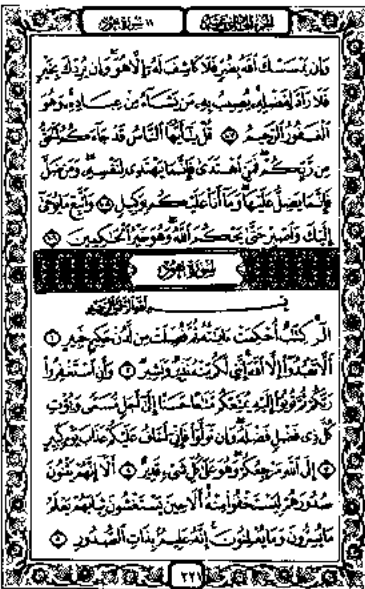 الجزء الحادي عشر ١١ سورة هود
وَإِن يَمْسَسْكَ اللَّهُ بِضُرٍّ فَلَا كَاشِفَ لَهُ إِلَّا هُوَ وَإِن يُرِدْكَ بِخَيْرٍ
فَلَا رَادَّ لِفَضْلِهِ يُصِيبُ بِهِ مَن يَشَاءُ مِنْ عِبَادِهِ وَهُوَ
الْغَفُورُ الرَّحِيمُ ١٠٧ قُلْ يَا أَيُّهَا النَّاسُ قَدْ جَاءَكُمُ الْحَقُّ
مِن رَّبِّكُمْ فَمَنِ اهْتَدَى فَإِنَّمَا يَهْتَدِي لِنَفْسِهِ وَمَن ضَلَّ
فَإِنَّمَا يَضِلُّ عَلَيْهَا وَمَا أَنَا عَلَيْكُم بِوَكِيلٍ ١٠٨ وَاتَّبِعْ مَا يُوحَى
إِلَيْكَ وَاصْبِرْ حَتَّى يَحْكُمَ اللَّهُ وَهُوَ خَيْرُ الْحَاكِمِينَ ١٠٩
سورة هود
بِسْمِ اللَّهِ الرَّحْمَنِ الرَّحِيمِ
الر كِتَابٌ أُحْكِمَتْ آيَاتُهُ ثُمَّ فُصِّلَتْ مِن لَّدُنْ حَكِيمٍ خَبِيرٍ ١
أَلَّا تَعْبُدُوا إِلَّا اللَّهَ إِنَّنِي لَكُم مِّنْهُ نَذِيرٌ وَبَشِيرٌ ٢ وَأَنِ اسْتَغْفِرُوا
رَبَّكُمْ ثُمَّ تُوبُوا إِلَيْهِ يُمَتِّعْكُم مَّتَاعًا حَسَنًا إِلَى أَجَلٍ مُّسَمًّى وَيُؤْتِ
كُلَّ ذِي فَضْلٍ فَضْلَهُ وَإِن تَوَلَّوْا فَإِنِّي أَخَافُ عَلَيْكُمْ عَذَابَ يَوْمٍ كَبِيرٍ
٣ إِلَى اللَّهِ مَرْجِعُكُمْ وَهُوَ عَلَى كُلِّ شَيْءٍ قَدِيرٌ ٤ أَلَا إِنَّهُمْ يَثْنُونَ
صُدُورَهُمْ لِيَسْتَخْفُوا مِنْهُ أَلَا حِينَ يَسْتَغْشُونَ ثِيَابَهُمْ يَعْلَمُ
مَا يُسِرُّونَ وَمَا يُعْلِنُونَ إِنَّهُ عَلِيمٌ بِذَاتِ الصُّدُورِ ٥
٢٢١